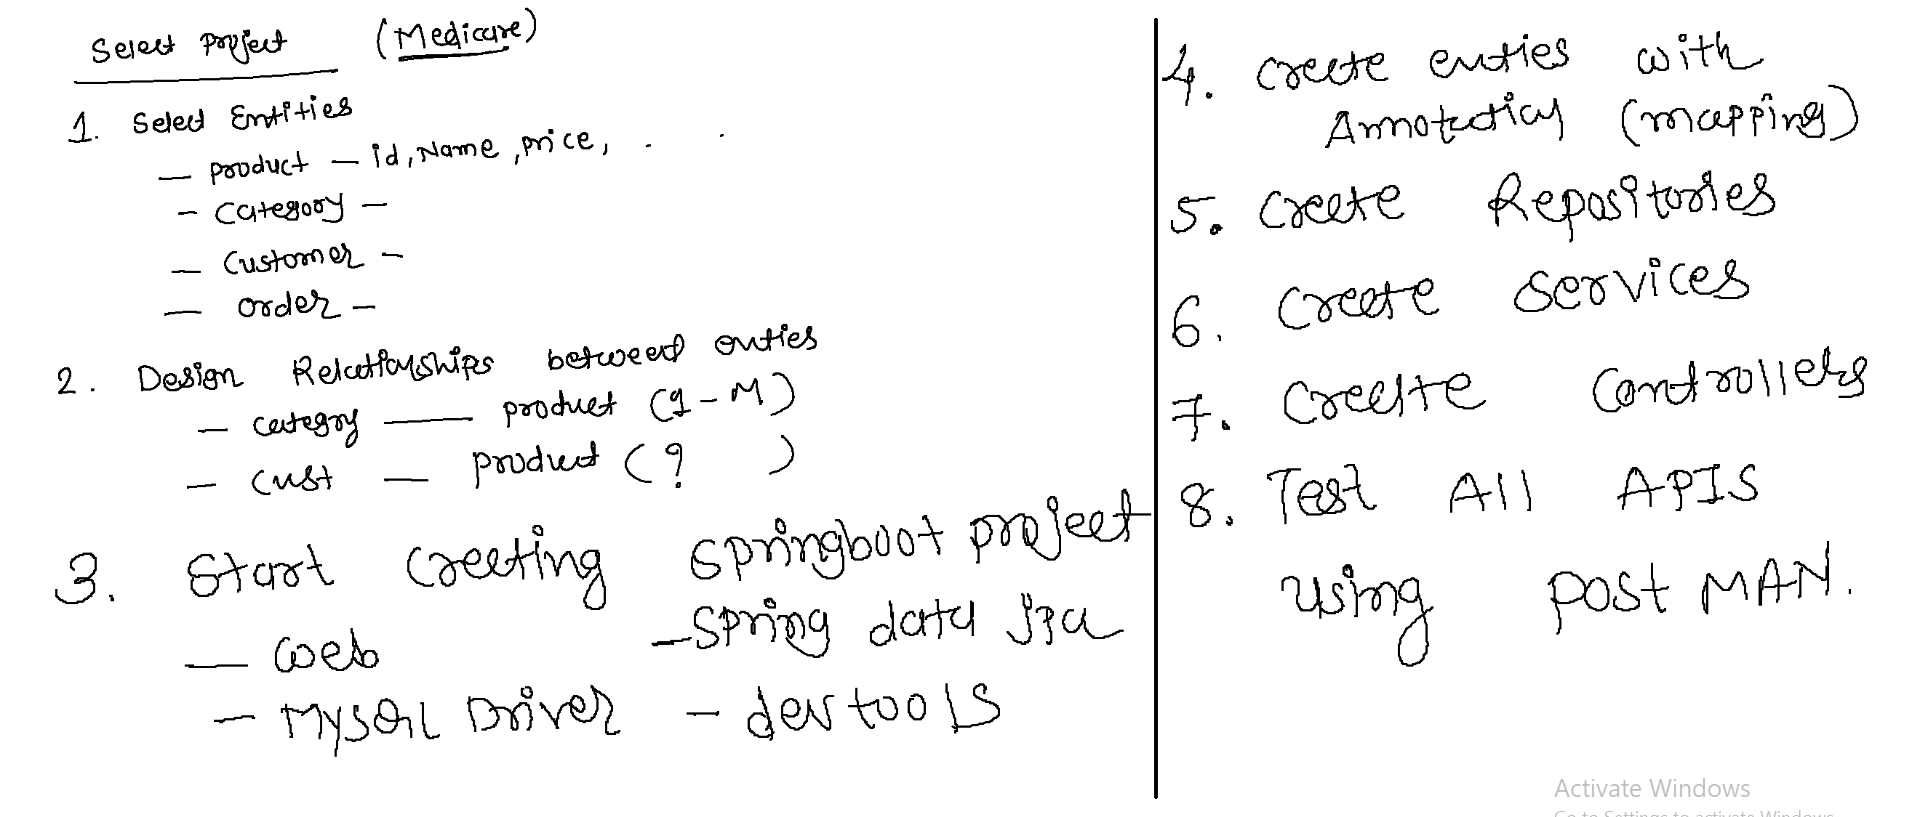 Select Project (Medicare)
1. Select Entities
— product — id, Name, price, . .
— Category —
— Customer —
— order —
2. Design Relationships between enties
— category — product (1-M)
— cust — product (? )
3. Start Creeting springboot project
— web — spring data jpa
— MySQL Driver — devtools
4. Creete enties with
Annotation (mapping)
5. Creete Repositories
6. Create Services
7. Create Controllers
8. Test All APIS
using post MAN.
Activate Windows
Go to Settings to activate Windows.